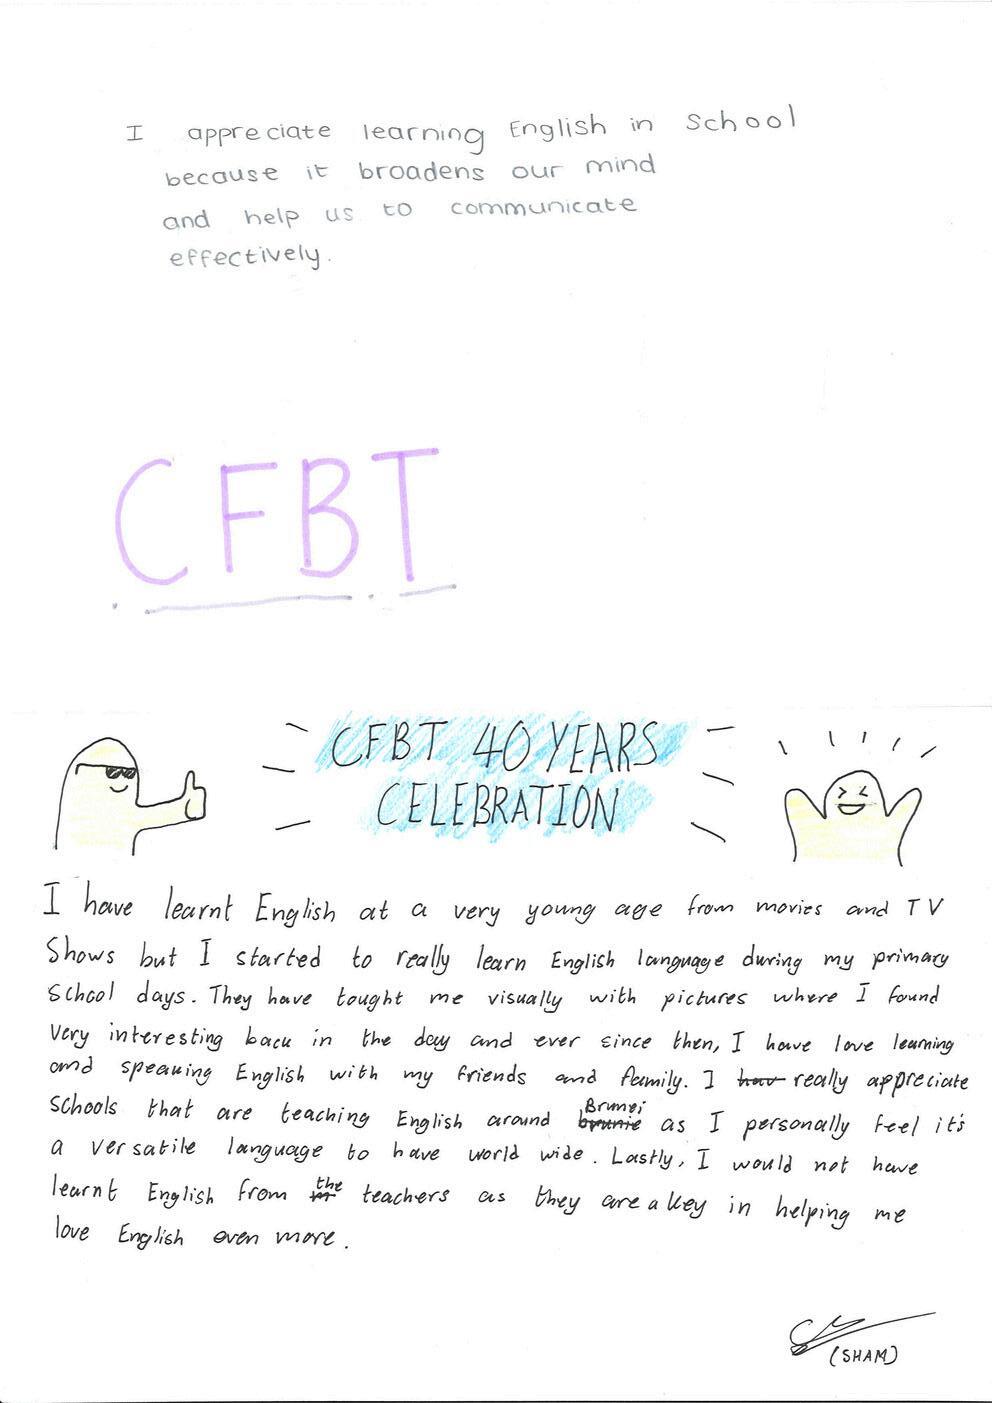 I appreciate learning English in School
because it broadens our mind
and help us to communicate
effectively.
CFBT
CFBT 40 YEARS
CELEBRATION
I have learnt English at a very young age from movies and TV
Shows but I started to really learn English language during my primary
School days. They have tought me visually with pictures where I found
Very interesting back in the day and ever since then, I have love learning
and speaking English with my friends and family. I hav really appreciate
Schools that are teaching English around brunie Brunei as I personally feel it's
a versatile language to have world wide. Lastly, I would not have
learnt English from the teachers as they are a key in helping me
love English even more.
(SHAM)